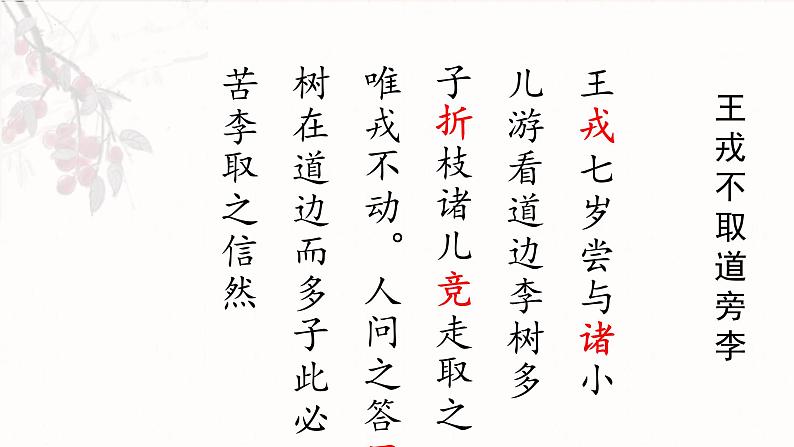 王戎不取道旁李
王戎七岁尝与诸小
儿游看道边李树多
子折枝诸儿竞走取之
唯戎不动。人问之答
树在道边而多子此必
苦李取之信然